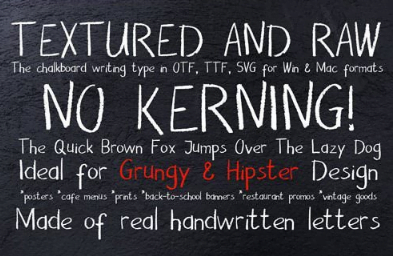 TEXTURED AND RAW
The chalkboard writing type in OTF, TTF, SVG for Win & Mac formats
NO KERNING!
The Quick Brown Fox Jumps Over The Lazy Dog
Ideal for Grungy & Hipster Design
*posters *cafe menus *prints *back-to-school banners *restaurant promos *vintage goods
Made of real handwritten letters